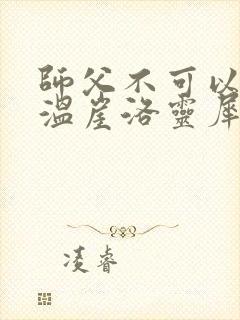 師父不可以
溫崖洛靈犀
凌睿